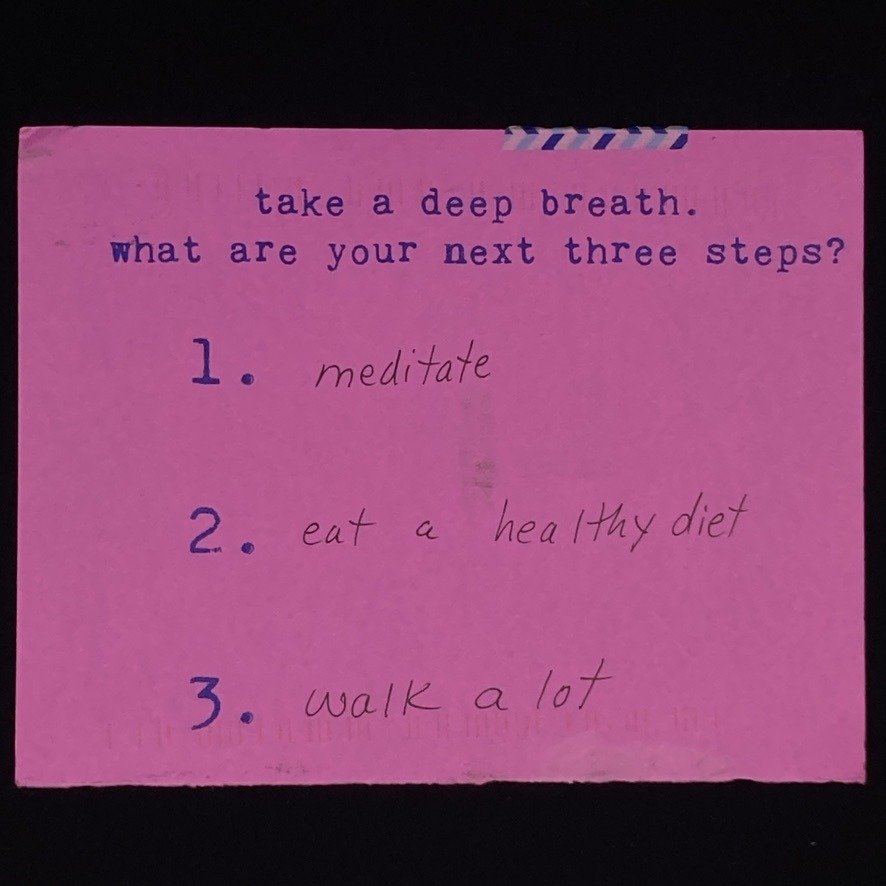 take a deep breath.
what are your next three steps?
1. meditate
2. eat a healthy diet
3. walk a lot